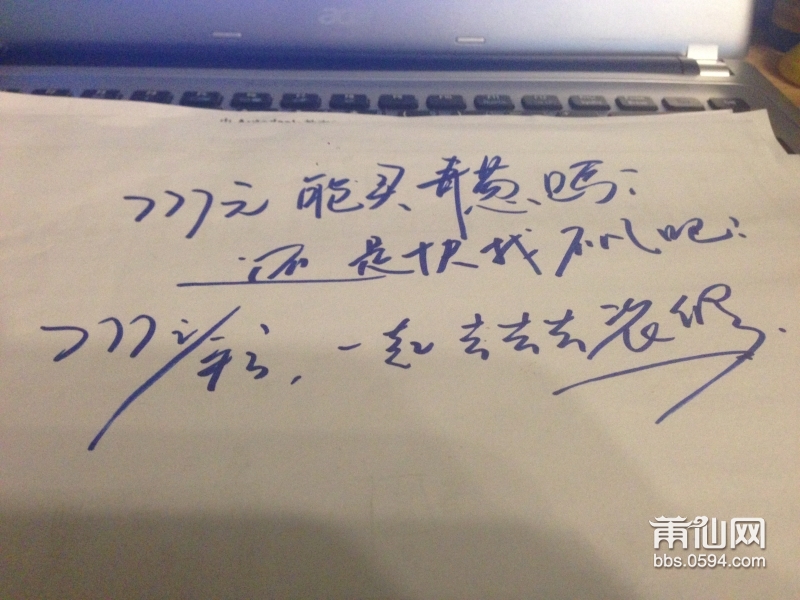 acer
777元能买吗?
还是快找不凡吧!
777元/，一起去去去装修.
莆仙网
bbs.0594.com